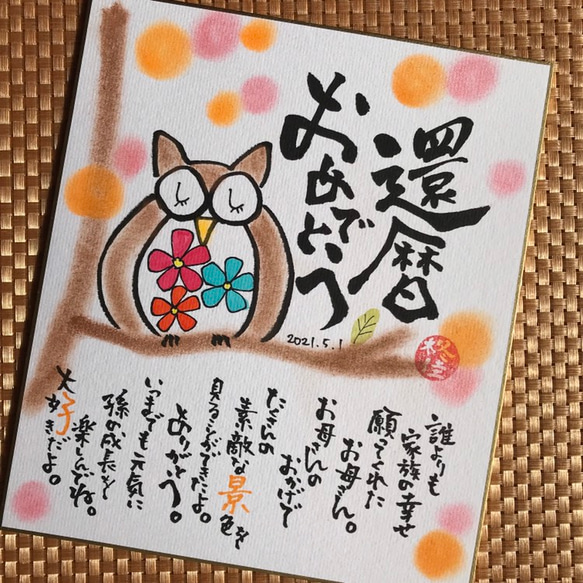 還暦
おめでとう
2021.5.1
誰よりも
家族の幸せ
願ってくれた
お母さん。
お母さんの
おかげで
たくさんの
素敵な景色を
見ることができたよ。
ありがとう。
いつまでも元気に
孫の成長を
楽しんでね。
大好きだよ。